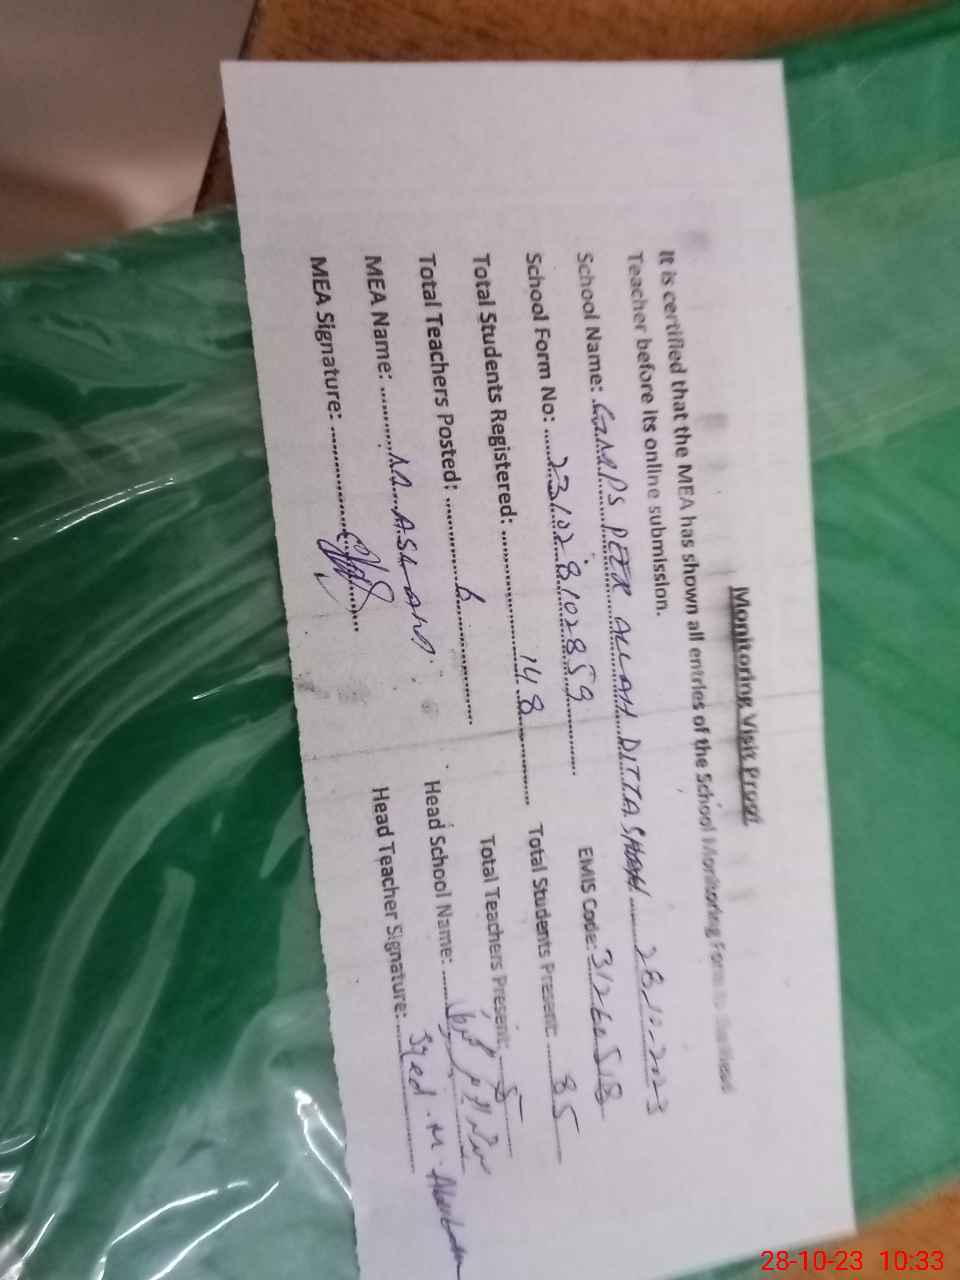 Monitoring Visit Proof
It is certified that the MEA has shown all entries of the School Monitoring Form to the Head
Teacher before its online submission.
School Name: GMPS PEER ALLAH DITTA SHAH 28-10-2023
School Form No: 231028102859 EMIS Code: 31260518
Total Students Registered: 148 Total Students Present: 85
Total Teachers Posted: 6 Total Teachers Present: 5
MEA Name: Head School Name:
MEA Signature: Head Teacher Signature: Syed . M.
28-10-23 10:33